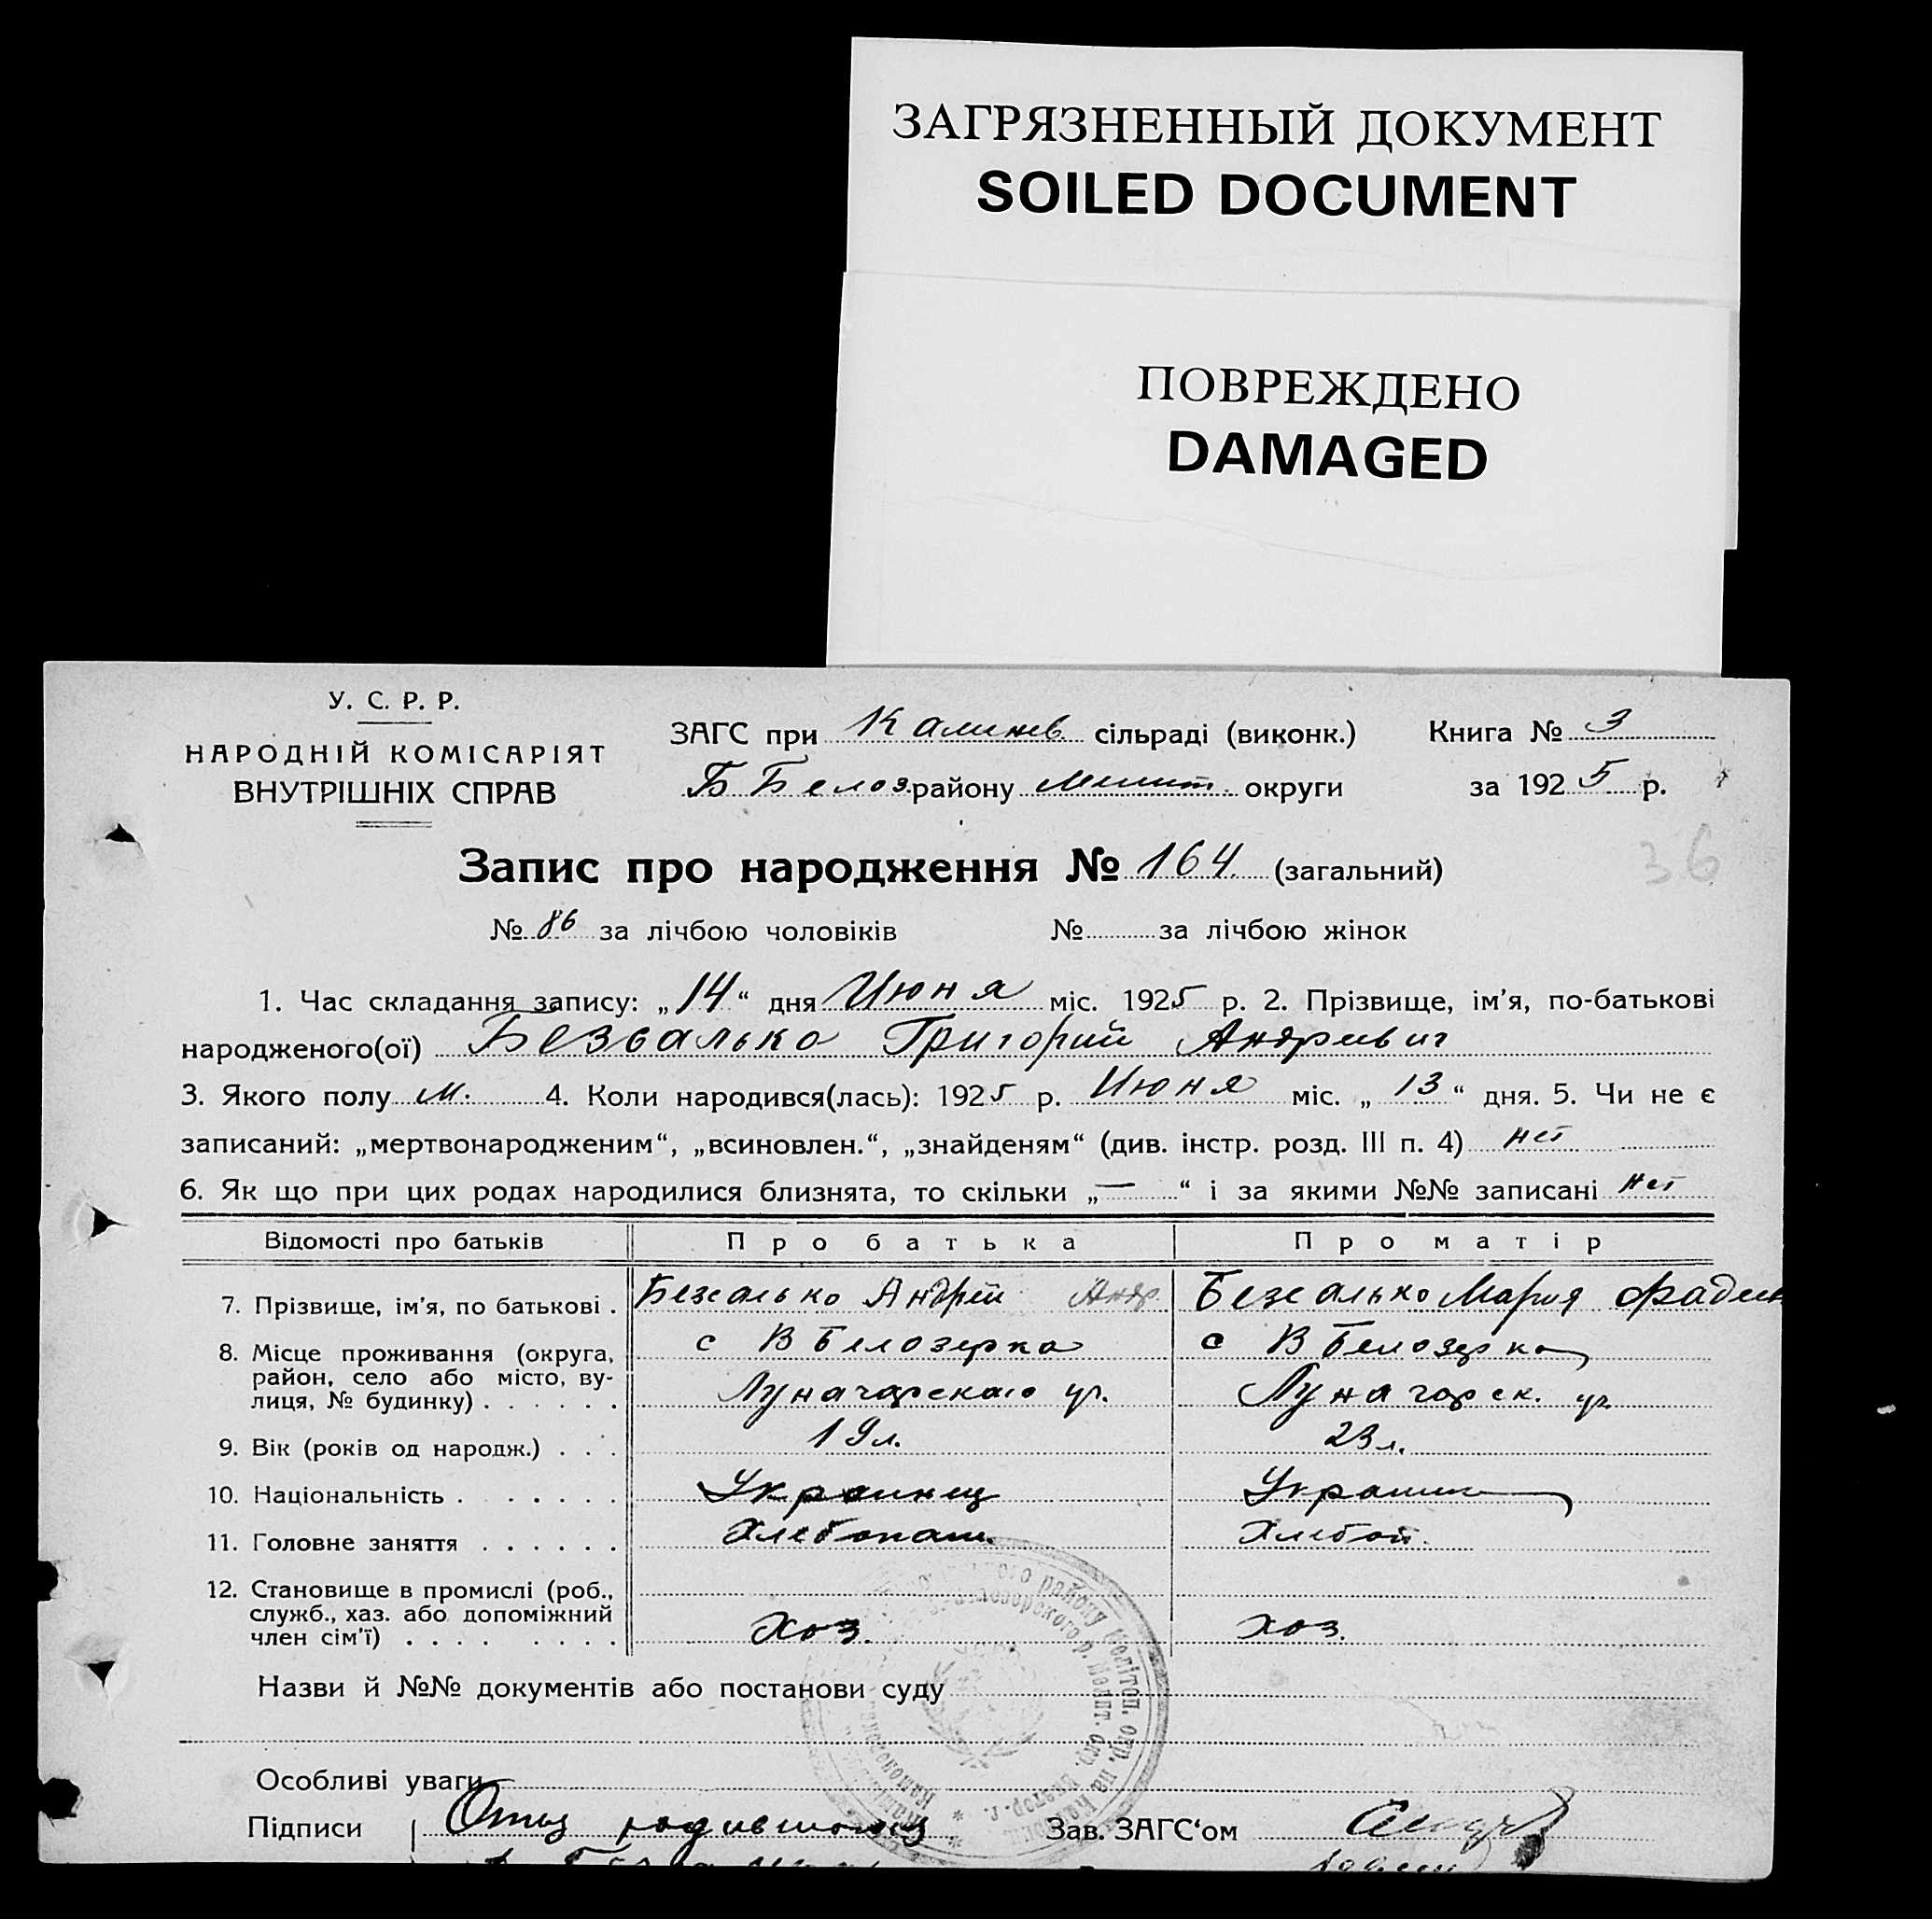 ЗАГРЯЗНЕННЫЙ ДОКУМЕНТ
SOILED DOCUMENT
ПОВРЕЖДЕНО
DAMAGED
У. С. Р. Р.
НАРОДНІЙ КОМІСАРІЯТ
ВНУТРІШНІХ СПРАВ
ЗАГС при Калинов. сільраді (виконк.)
Б Белоз. району Мелит. округи
Книга № 3
за 1925 р.
36
Запис про народження № 164. (загальний)
№ 86 за лічбою чоловіків № за лічбою жінок
1. Час складання запису: „14“ дня Июня міс. 1925 р. 2. Прізвище, ім'я, по-батькові
народженого(ої) Безвалько Григорий Андреевич
3. Якого полу м. 4. Коли народився(лась): 1925 р. Июня міс. „13“ дня. 5. Чи не є
записаний: „мертвонародженим“, „всиновлен.“, „знайденям“ (див. інстр. розд. III п. 4) нет
6. Як що при цих родах народилися близнята, то скільки „—“ і за якими №№ записані нет
Відомості про батьків Про батька Про матір
7. Прізвище, ім'я, по батькові . Безвалько Андрей Андр Безвалько Мария
8. Місце проживання (округа, с В Белозерка с В Белозерка
район, село або місто, ву-
лиця, № будинку) . . . . . . Луначарскаго ул. Луначарск. ул.
9. Вік (років од народж.) . . . 19 л. 23 л.
10. Національність . . . . . . Украинец Украин
11. Головне заняття . . . . . . Хлебопаш. Хлебоп.
12. Становище в промислі (роб.,
служб., хаз. або допоміжний
член сім'ї) . . . . . . . . Хоз. Хоз.
Назви й №№ документів або постанови суду
Особливі уваги
Підписи Отец родившогося Зав. ЗАГС'ом